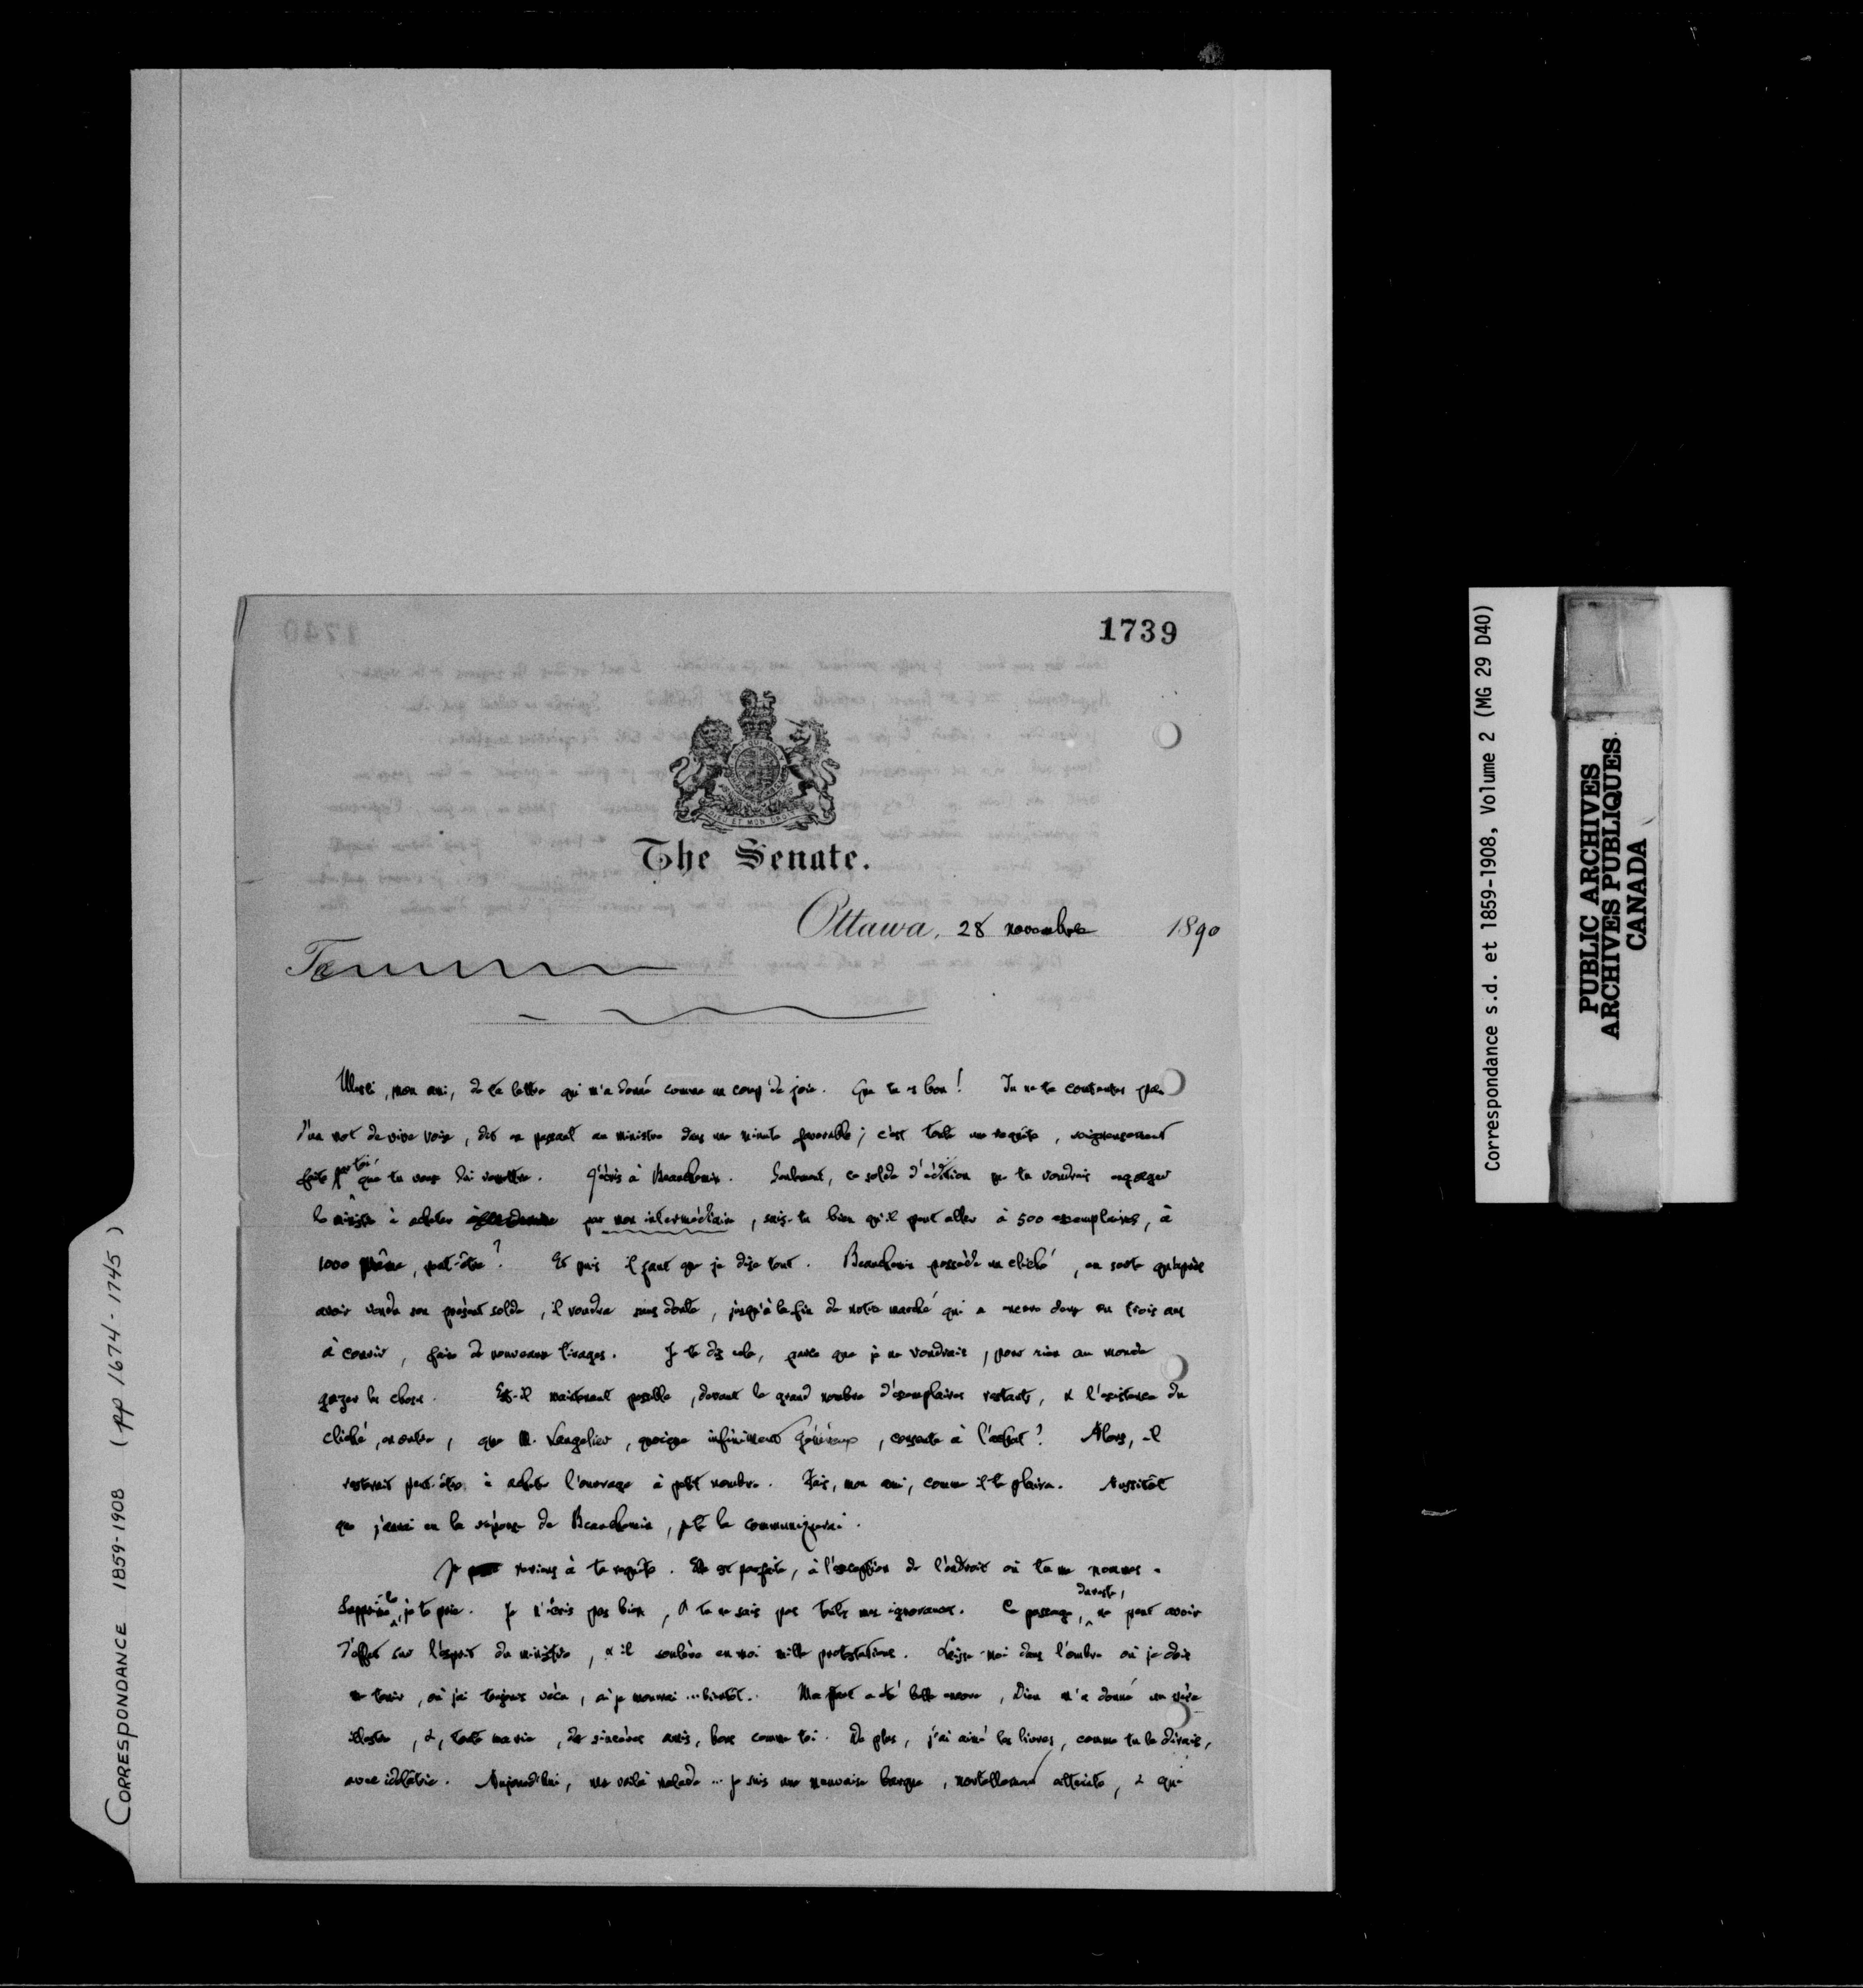 1739
1740
DIEU ET MON DROIT
The Senate.
Ottawa, 28 novembre 1890
Merci, mon ami, de ta lettre qui m'a donné comme un coup de joie. Que tu es bon ! Tu ne te contentes pas
d'un mot de vive voix, dit en passant au ministre dans une minute favorable ; c'est toute une requête, soigneusement
faite par toi, que tu veux lui remettre. J'écris à Beauchemin. Seulement, ce solde d'édition que tu voudrais engager
le ministre à acheter par mon intermédiaire, sais-tu bien qu'il peut aller à 500 exemplaires, à
1000 même, peut-être ? Et puis il faut que je dise tout. Beauchemin possède un cliché, en sorte qu'après
avoir vendu son présent solde, il voudra sans doute, jusqu'à la fin de notre marché qui a encore deux ou trois ans
à courir, faire de nouveaux tirages. Je te dis cela, parce que je ne voudrais, pour rien au monde
gazer les choses. Est-il maintenant possible, devant le grand nombre d'exemplaires restants, & l'existence du
cliché, en outre, que M. Langelier, quoique infiniment généreux, consente à l'achat ? Alors, il
resterait peut-être à acheter l'ouvrage à petit nombre. Fais, mon ami, comme il te plaira. Aussitôt
que j'aurai eu la réponse de Beauchemin, je te la communiquerai.
Je reviens à ta requête. Elle est parfaite, à l'exception de l'endroit où tu me nommes.
Supprime-le, je te prie. Je n'écris pas bien, & tu ne sais pas toutes mes ignorances. Ce passage, du reste, ne peut avoir
d'effet sur l'esprit du ministre, & il soulève en moi mille protestations. Laisse-moi dans l'ombre où je dois
me tenir, où j'ai toujours vécu, où je mourrai ... bientôt. Ma part a été belle encore, Dieu m'a donné un père
illustre, &, toute ma vie, de sincères amis, bons comme toi. De plus, j'ai aimé les livres, comme tu le dirais,
avec idolâtrie. Aujourd'hui, me voilà malade ... je suis une mauvaise barque, mortellement atteinte, & qui
CORRESPONDANCE 1859-1908 (pp 1674-1745)
Correspondance s.d. et 1859-1908, Volume 2 (MG 29 D40)
PUBLIC ARCHIVES
ARCHIVES PUBLIQUES
CANADA